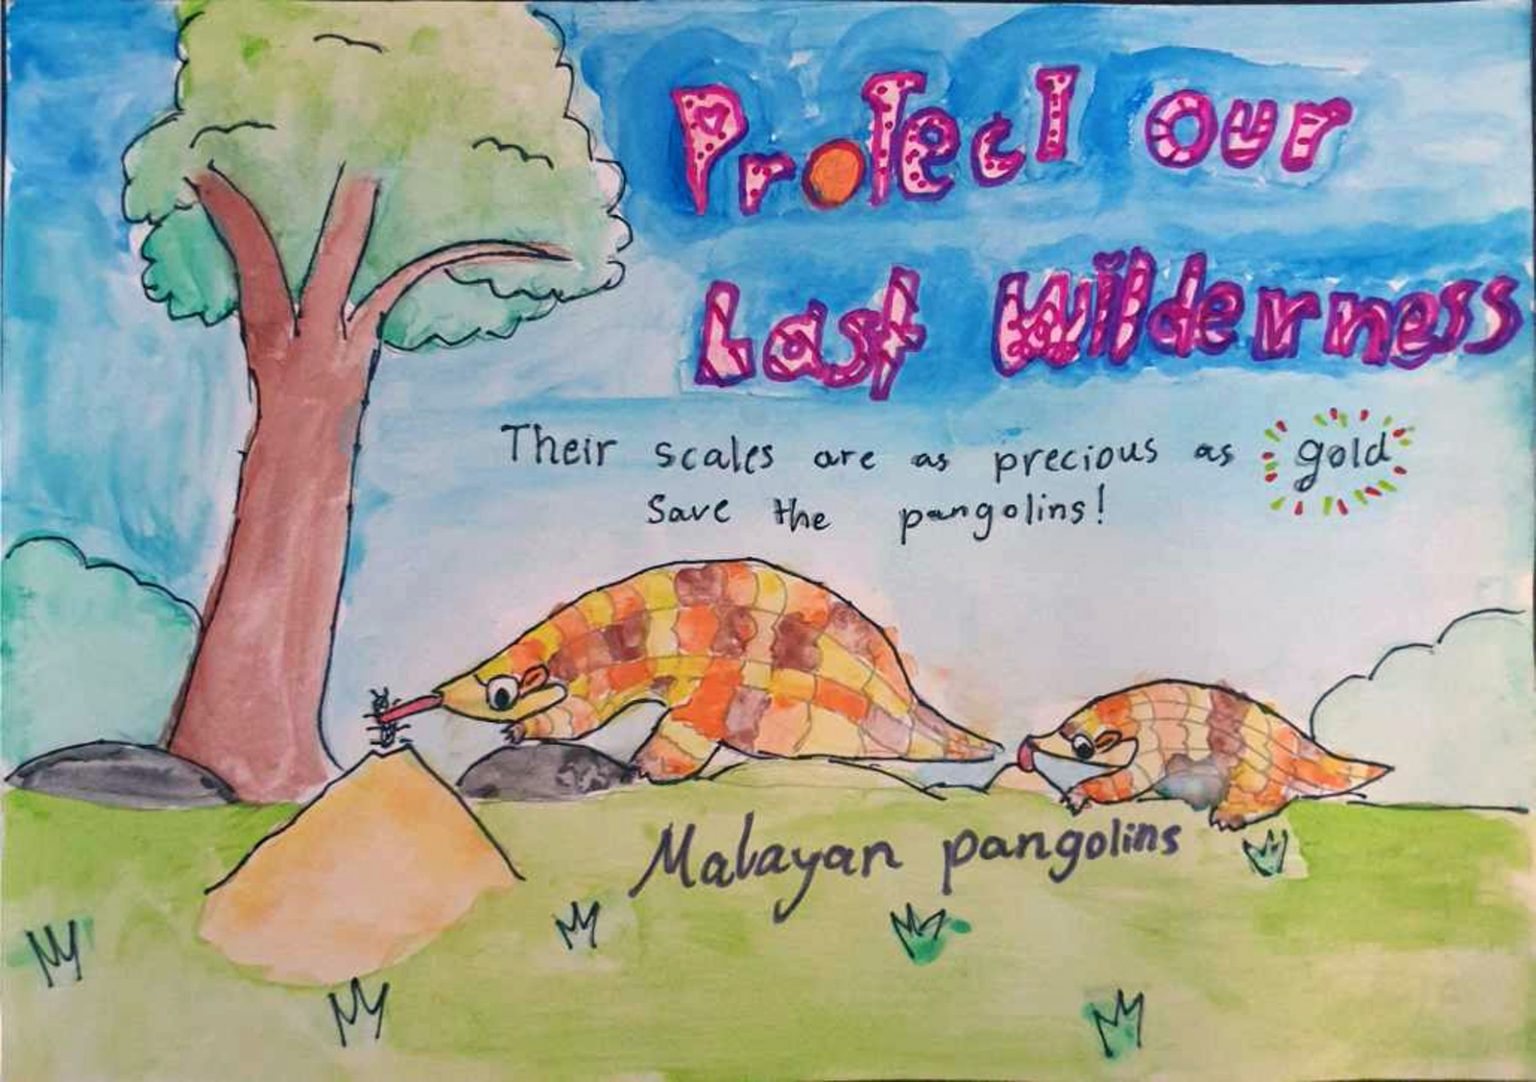 Protect our
Last Wilderness
Their scales are as precious as gold
Save the pangolins!
Malayan pangolins